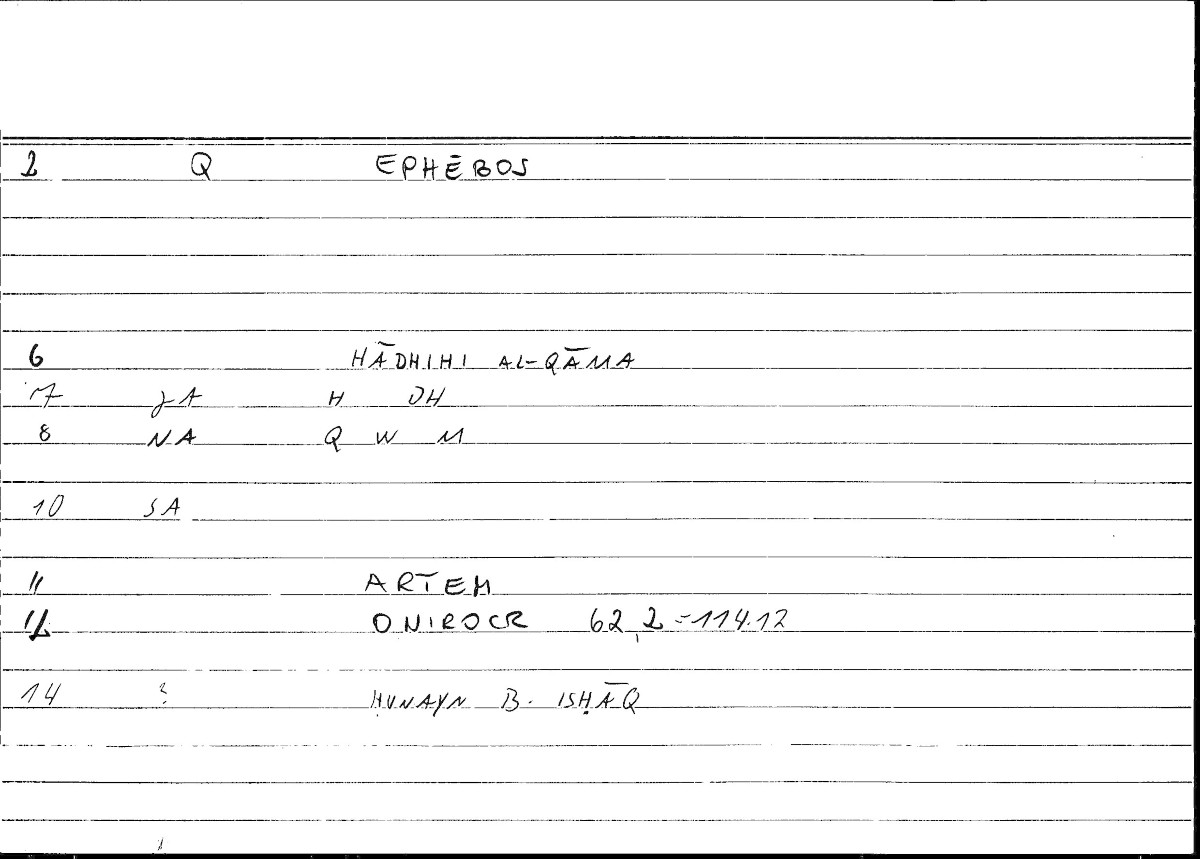 2 Q EPHĒBOS
6 HĀDHIHI AL-QĀMA
7 JA H DH
8 NA Q W M
10 SA
11 ARTEM
12 ONIROCR 62,2=114.12
14 ? ḤUNAYN B. ISḤĀQ